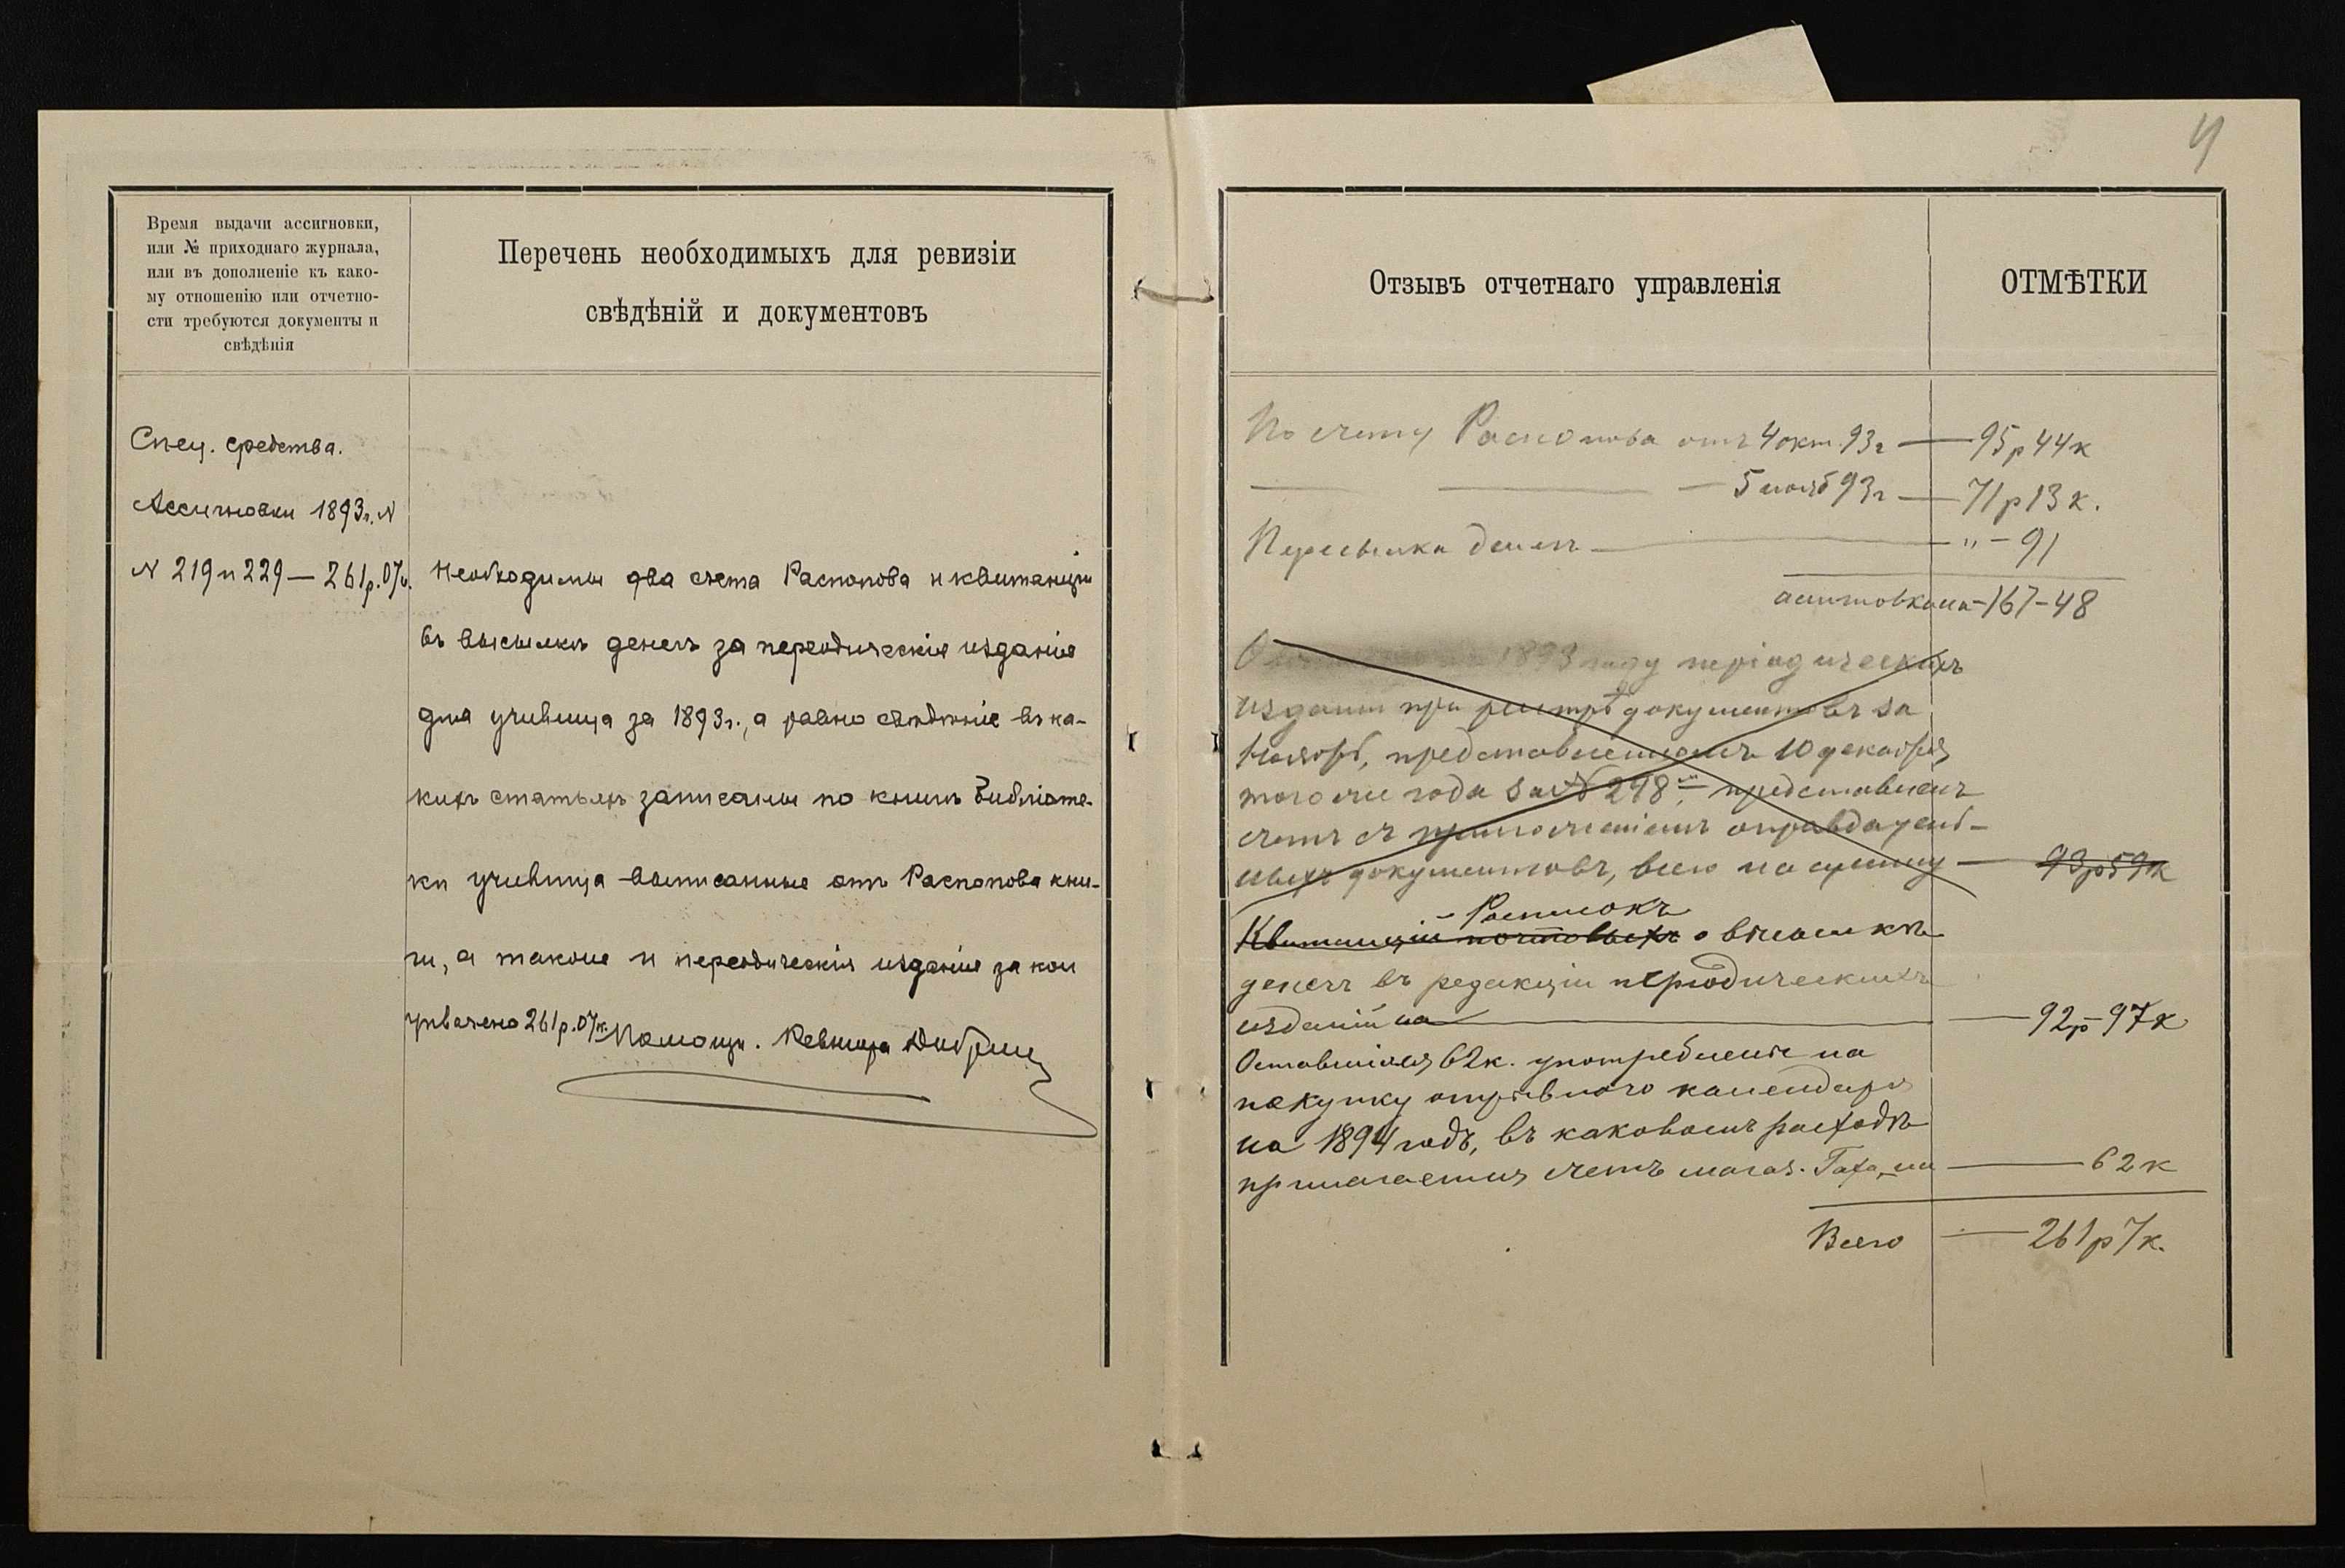 Время выдачи ассигновки,
или № приходнаго журнала,
или въ дополненіе къ како-
му отношенію или отчетно-
сти требуются документы и
свѣдѣнія
Перечень необходимыхъ для ревизіи
свѣдѣній и документовъ
Спец. средства.
Ассигновки 1893г. №
№ 219 и 229 — 261р.07к.
Необходимы два счета Распопова и квитанціи
въ высылкѣ денегъ за періодическія изданія
для училища за 1893г., а равно свѣдѣніе въ ка-
кихъ статьяхъ записаны по книгѣ библіоте-
ки училища выписанные отъ Распопова кни-
ги, а также и періодическія изданія за кои
уплачено 261р.07к. Помощн. Ревизора
4
Отзывъ отчетнаго управленія
ОТМѢТКИ
По счету Распопова отъ 4 окт. 93г — 95р44к
— — — 5 нояб 93г — 71р13к.
Пересылка денегъ — " — 91
ассигновками — 167 — 48
1893 году періодическихъ
изданій при реэстрѣ документовъ за
Ноябрь, представленномъ 10 декабря
того же года за № 248, представленъ
счетъ съ приложеніемъ оправдатель-
ныхъ документовъ, всего на сумму — 93р59к
Росписокъ
Квитанціи почтовыхъ о высылкѣ
денегъ въ редакціи періодическихъ
изданій на — 92р — 97к
Оставшіяся 62к. употреблены на
покупку отрывного календаря
на 1894 годъ, въ каковомъ расходѣ
прилагается счетъ магаз. на — 62к
Всего — 261р7к.